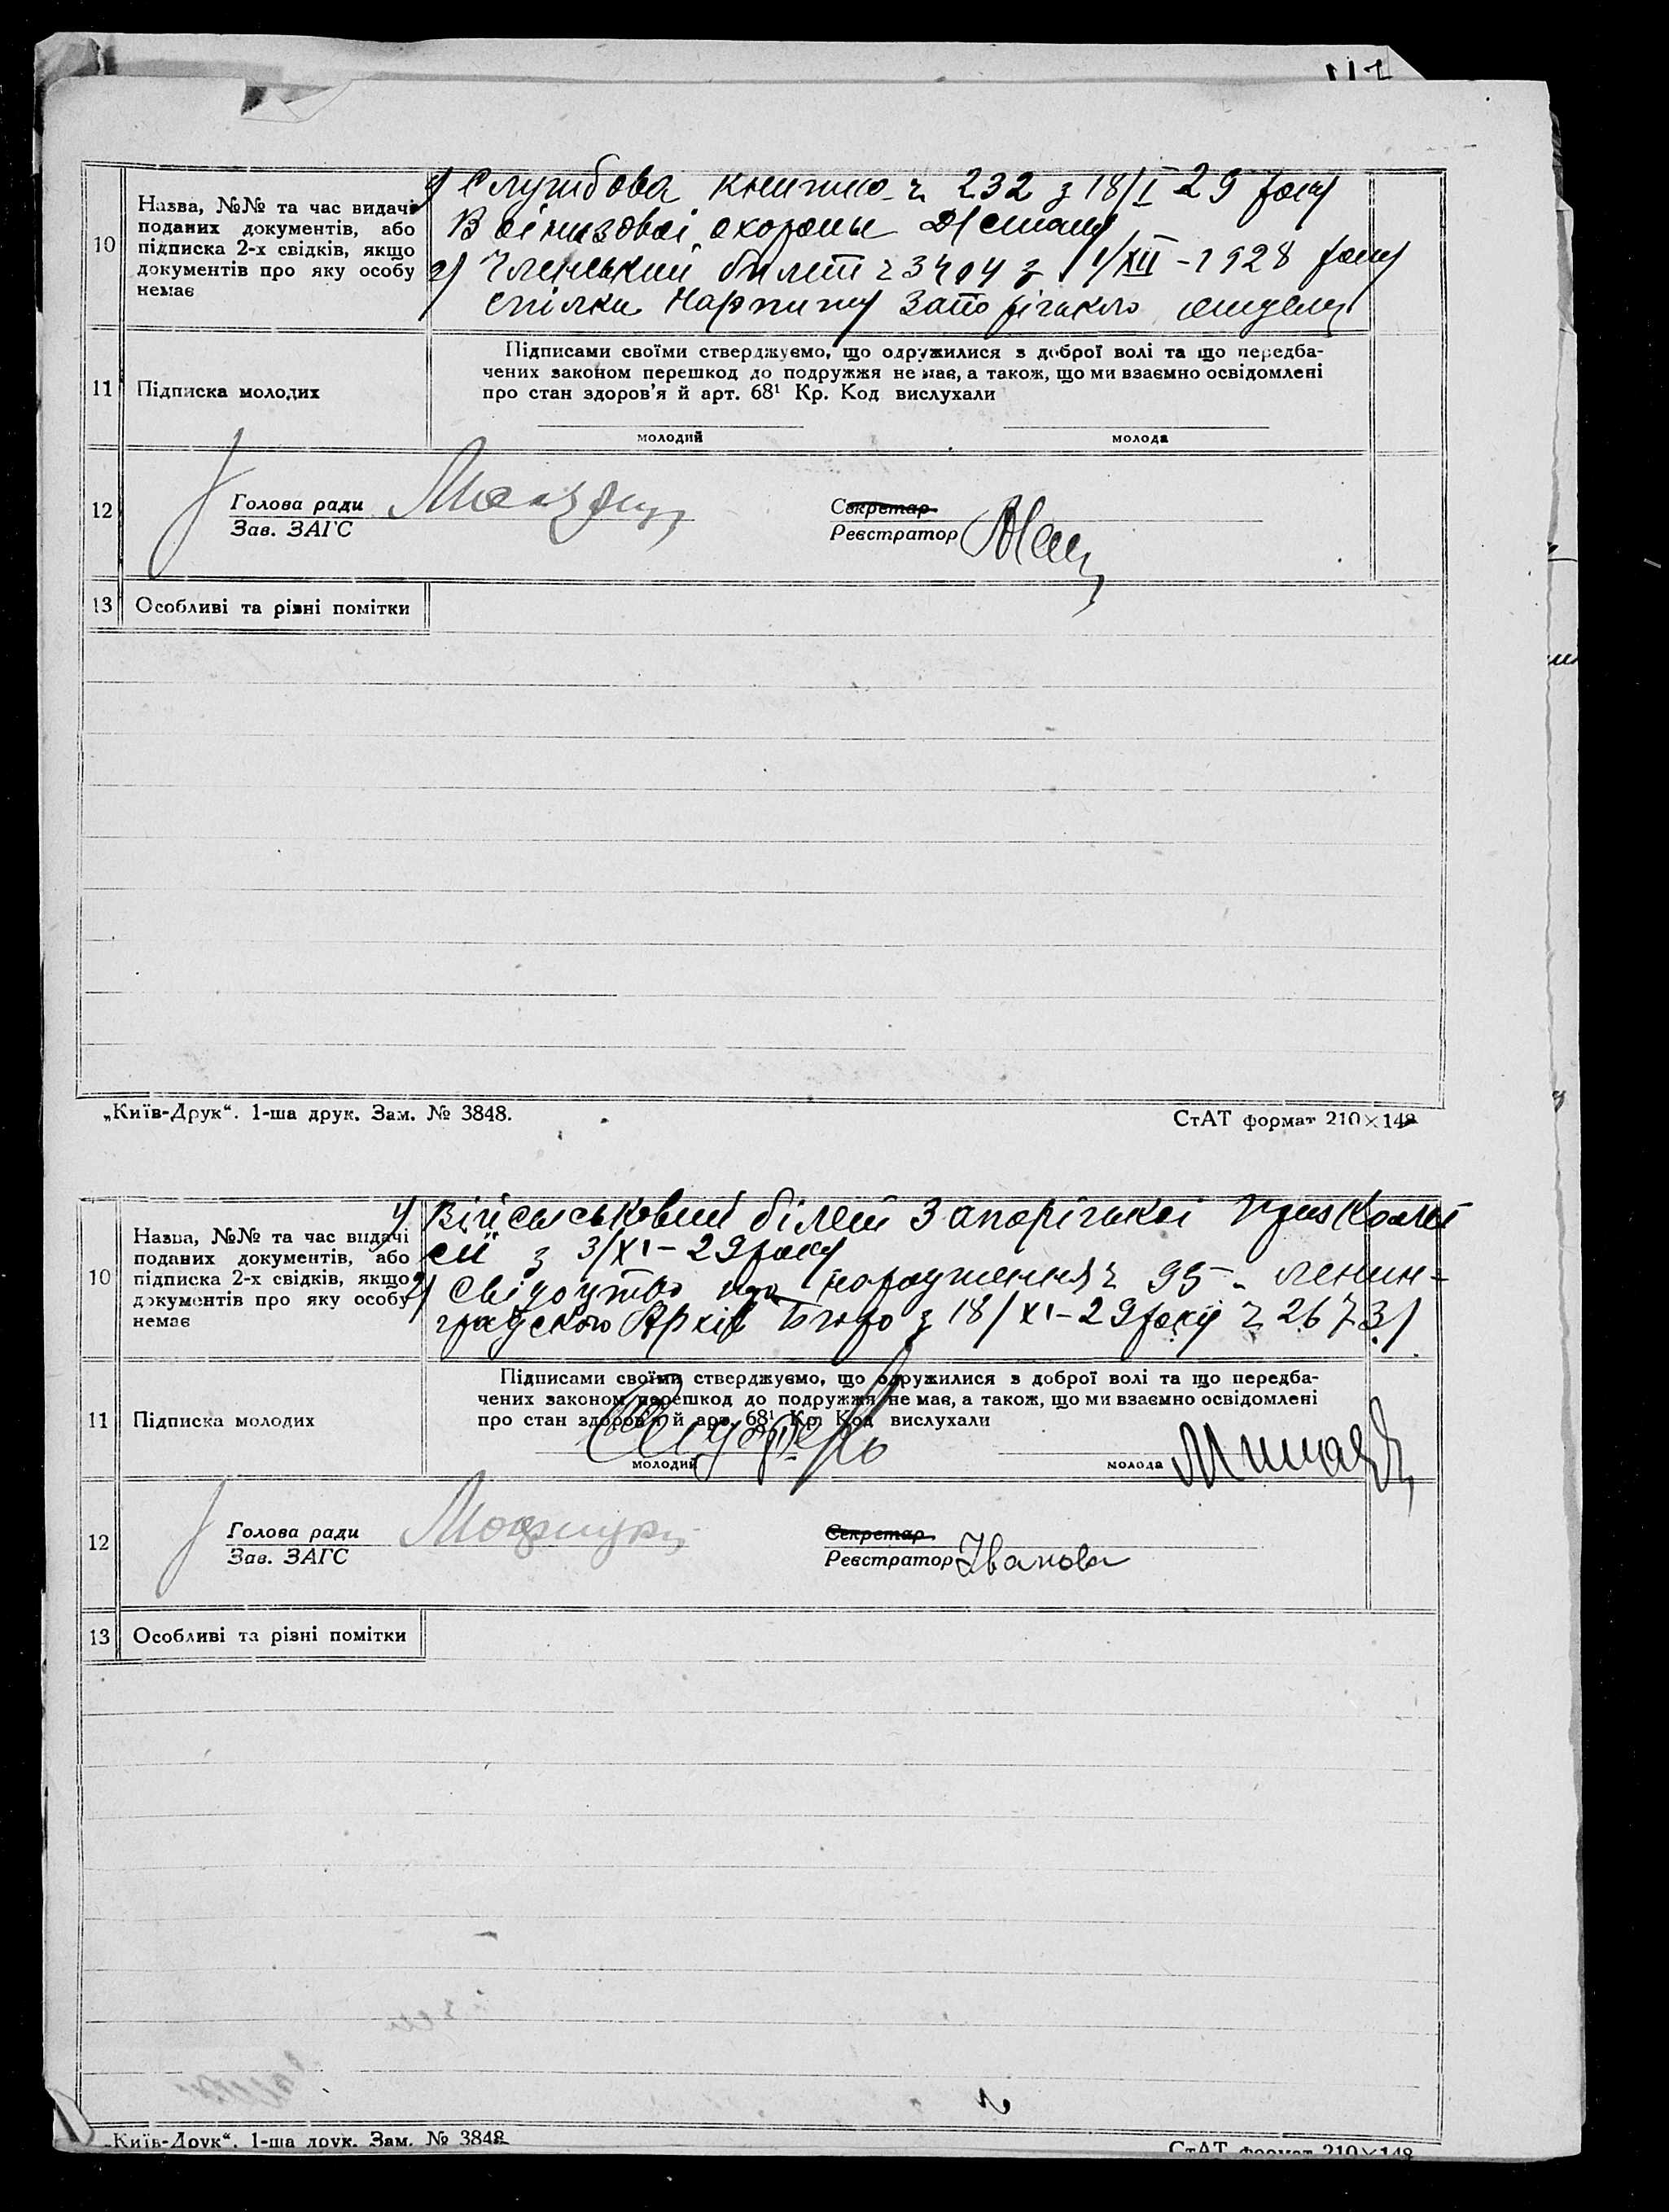 10
Назва, №№ та час видачі
поданих документів, або
підписка 2-х свідків, якщо
документів про яку особу
немає
1) Службова книжка ч 232 з 18/I 29 року
охорони
2) Членський билет ч 3404 з 1/XII - 1928 року
спілки Нарпиту Запорізького
11
Підписка молодих
Підписами своїми стверджуємо, що одружилися з доброї волі та що передба-
чених законом перешкод до подружжя не має, а також, що ми взаємно освідомлені
про стан здоров'я й арт. 68¹ Кр. Код вислухали
молодий молода
12
Голова ради
Зав. ЗАГС
Секретар
Реєстратор
13 Особливі та різні помітки
„Київ-Друк“. 1-ша друк. Зам. № 3848. СтАТ формат 210×148
10
Назва, №№ та час видачі
поданих документів, або
підписка 2-х свідків, якщо
документів про яку особу
немає
1) Військовий білет Запорізької
сії з 3/XI - 29 року
2) Свідоцтво про народження ч 95 - ленин-
градского Архів Бюро з 18/XI - 29 року ч 2673/
11
Підписка молодих
Підписами своїми стверджуємо, що одружилися з доброї волі та що передба-
чених законом перешкод до подружжя не має, а також, що ми взаємно освідомлені
про стан здоров'я й арт. 68¹ Кр. Код вислухали
молодий молода
12
Голова ради
Зав. ЗАГС
Секретар
Реєстратор Іванова
13 Особливі та різні помітки
„Київ-Друк“. 1-ша друк. Зам. № 3848 СтАТ формат 210×148